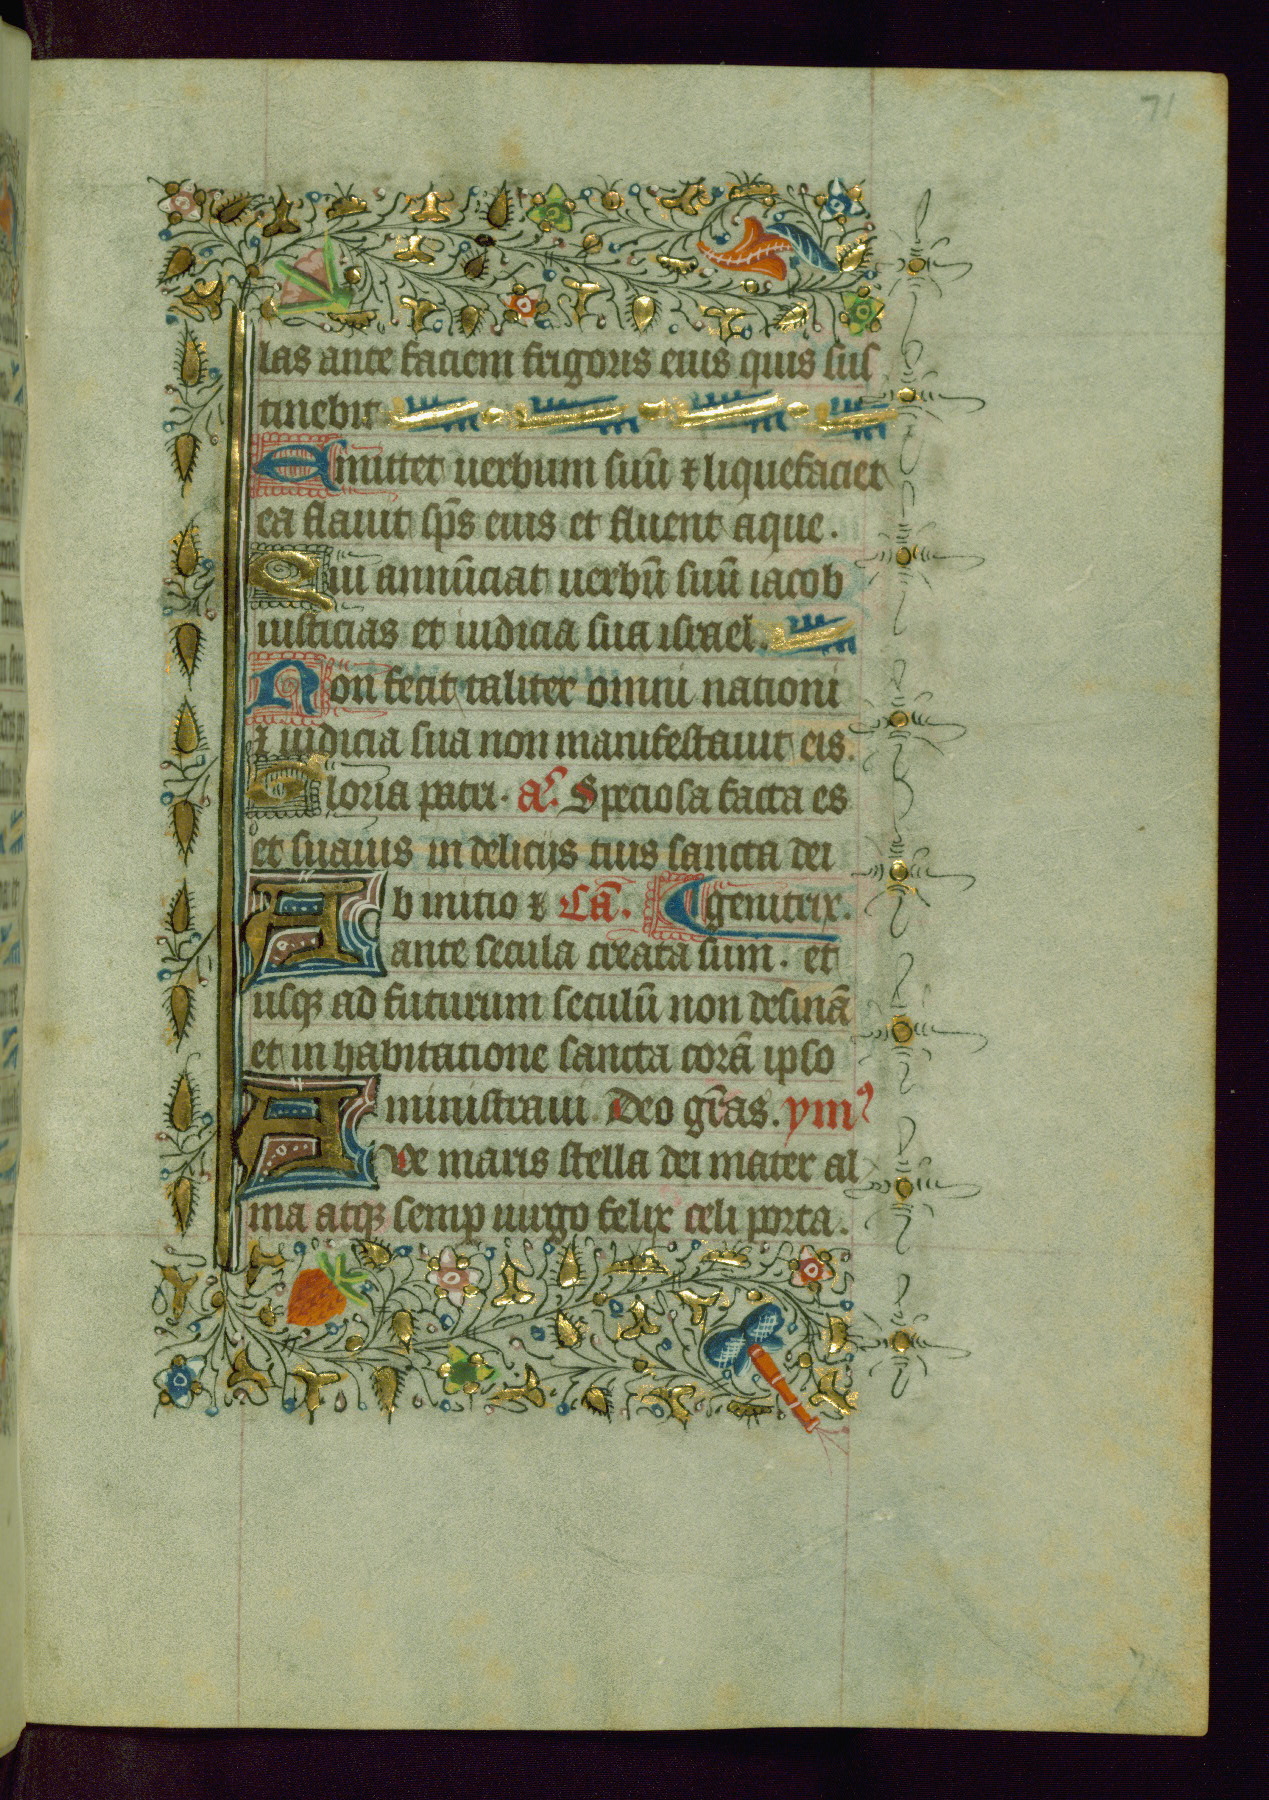 71
las ante faciem frigoris eius quis sus
tinebit
Emittet uerbum suū ⁊ liquefaciet
ea flauit sp̄s eius et fluent aque.
Qui annūciat uerbū suū iacob
iusticias et iudicia sua israel.
Non fecit taliter omni nationi
⁊ iudicia sua non manifestauit eis.
Gloria patri. a͞. Speciosa facta es
et suauis in delicijs tuis sancta dei
Ab initio ⁊ Ca᷉. genitrix.
ante secula creata sum. et
usqꝫ ad futurum seculū non desinā
et in habitatione sancta corā ipso
ministraui. Deo gr̄as. ymꝰ
AVe maris stella dei mater al
ma atqꝫ semp uirgo felix celi porta.